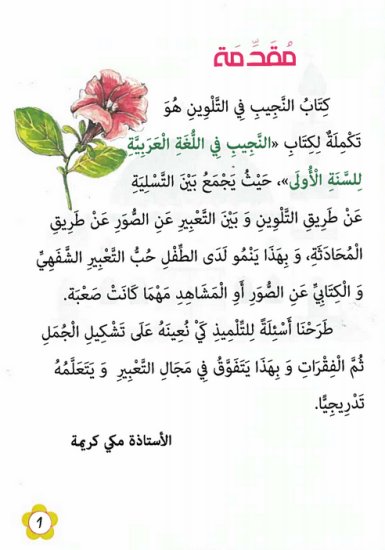 مُقَدِّمَة
كِتَابُ النَّجِيبِ فِي التَّلْوِينِ هُوَ
تَكْمِلَةٌ لِكِتَابِ «النَّجِيبِ فِي اللُّغَةِ الْعَرَبِيَّةِ
لِلسَّنَةِ الْأُولَى»، حَيْثُ يَجْمَعُ بَيْنَ التَّسْلِيَةِ
عَنْ طَرِيقِ التَّلْوِينِ وَ بَيْنَ التَّعْبِيرِ عَنِ الصُّوَرِ عَنْ طَرِيقِ
الْمُحَادَثَةِ، وَ بِهَذَا يَنْمُو لَدَى الطِّفْلِ حُبُّ التَّعْبِيرِ الشَّفَهِيِّ
وَ الْكِتَابِيِّ عَنِ الصُّوَرِ أَوِ الْمَشَاهِدِ مَهْمَا كَانَتْ صَعْبَة.
طَرَحْنَا أَسْئِلَةً لِلتِّلْمِيذِ كَيْ نُعِينَهُ عَلَى تَشْكِيلِ الْجُمَلِ
ثُمَّ الْفِقْرَاتِ وَ بِهَذَا يَتَفَوَّقُ فِي مَجَالِ التَّعْبِيرِ وَ يَتَعَلَّمُهُ
تَدْرِيجِيًّا.
الأستاذة مكي كريمة
1